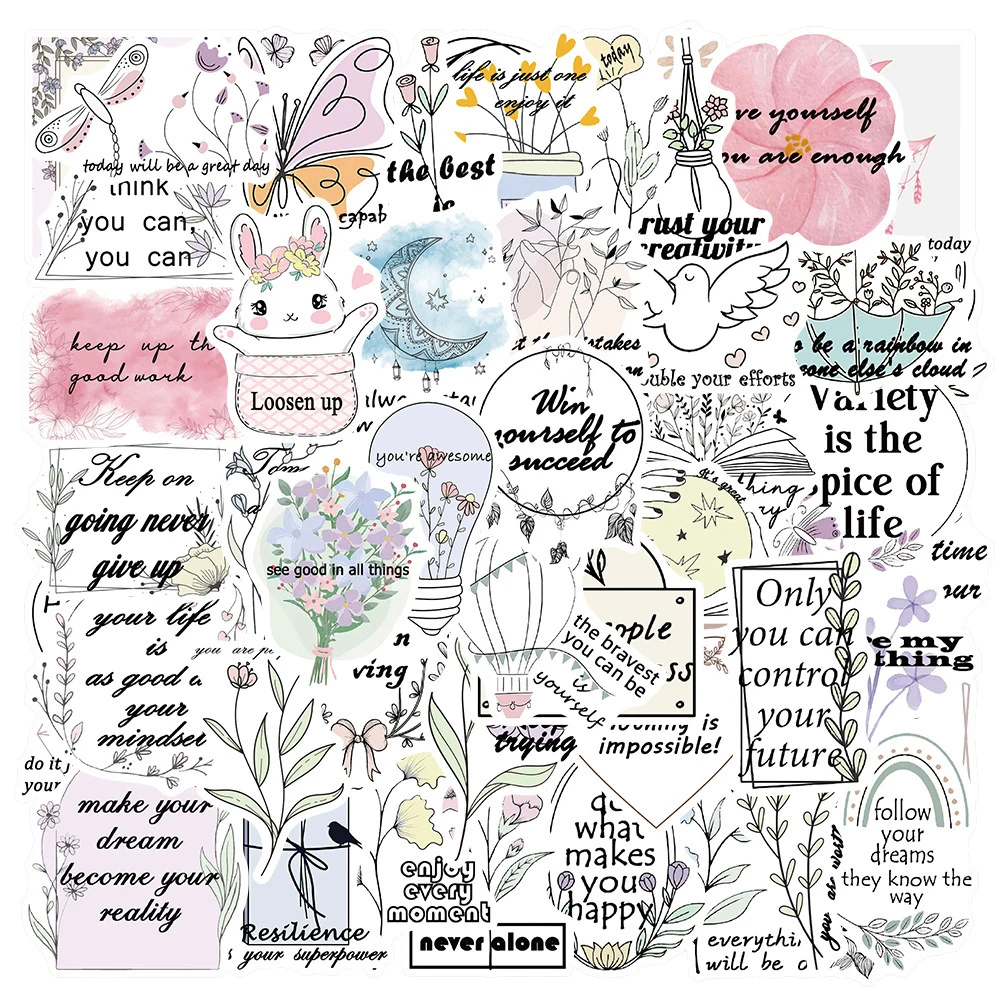 life is just one
enjoy it
today
ve yourself
ou are enough
the best
is
today will be a great day
think
you can,
you can
capab
rust your
creativity
today
keep up th
good work
Loosen up
takes
uble your efforts
o be a rainbow in
eone else's cloud
Win
yourself to
succeed
you're awesome
Variety
is the
pice of
life
Keep on
going never
give up
see good in all things
thing
time
our
your life
is
as good a
your
mindset
you are
ving
ople
ss
the bravest
you can be
is
yourself
Only
you can
control
your
future
e my
thing
trying
is
impossible!
do it
your
make your
dream
become your
reality
what
makes
you
happy
follow
your
dreams
they know the
way
enjoy
every
moment
you are worth
Resilience
s your superpower
never alone
everythi
will be o